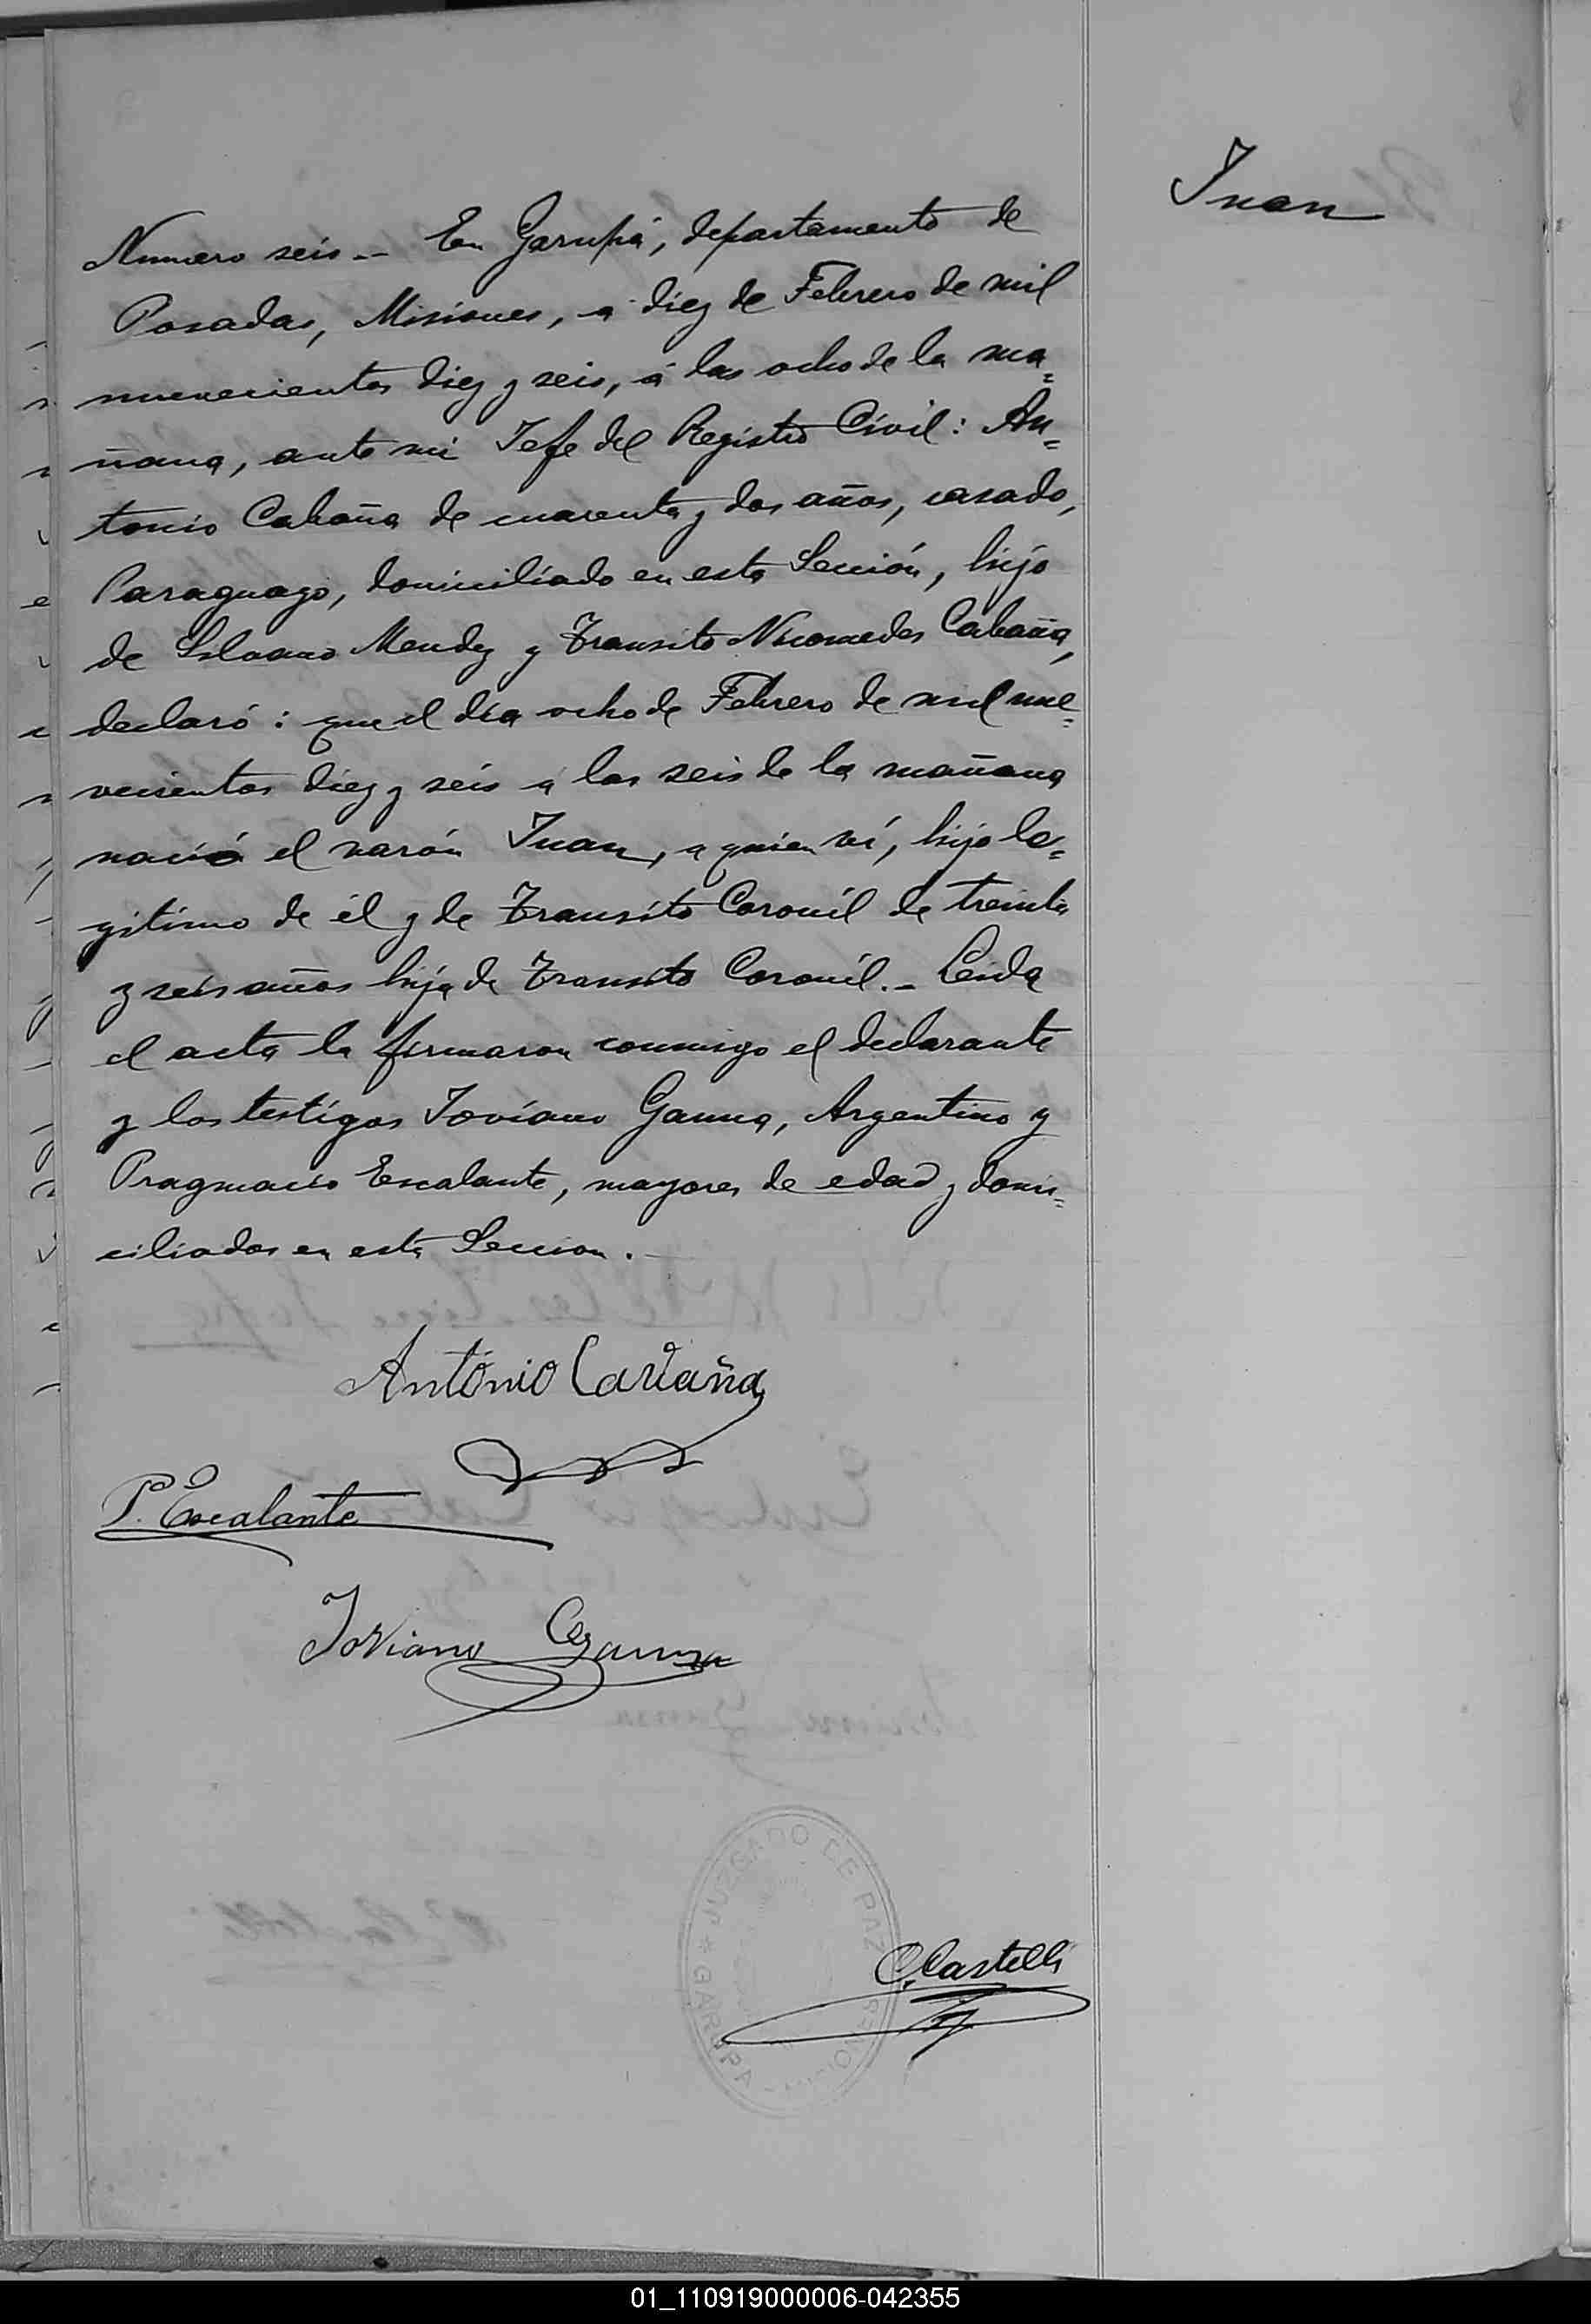 Juan
Numero seis.- En Garupá, departamento de
Posadas, Misiones, a diez de Febrero de mil
novecientos diez y seis, á las ocho de la ma=
ñana, ante mi Jefe del Registro Civil: An=
tonio Cabaña de cuarenta y dos años, casado,
Paraguayo, domiciliado en esta Sección, hijo
de Silvano Mendez y Transito Nicomedes Cabaña,
declaró: que el día ocho de Febrero de mil nue=
vecientos diez y seis a las seis de la mañana
nació el varón Juan, a quien ví, hijo le=
gitimo de él y de Transito Coronil de treinta
y seis años hija de Transito Coronil.- Leida
el acta la firmaron conmigo el declarante
y los testigos Joviano Gauna, Argentino y
Pragmacio Escalante, mayores de edad y domi=
ciliados en esta Seccion.
Antonio Cavaña
P. Escalante
Joviano Gauna
JUZGADO DE PAZ
GARUPA
C. Castelli
01_110919000006-042355